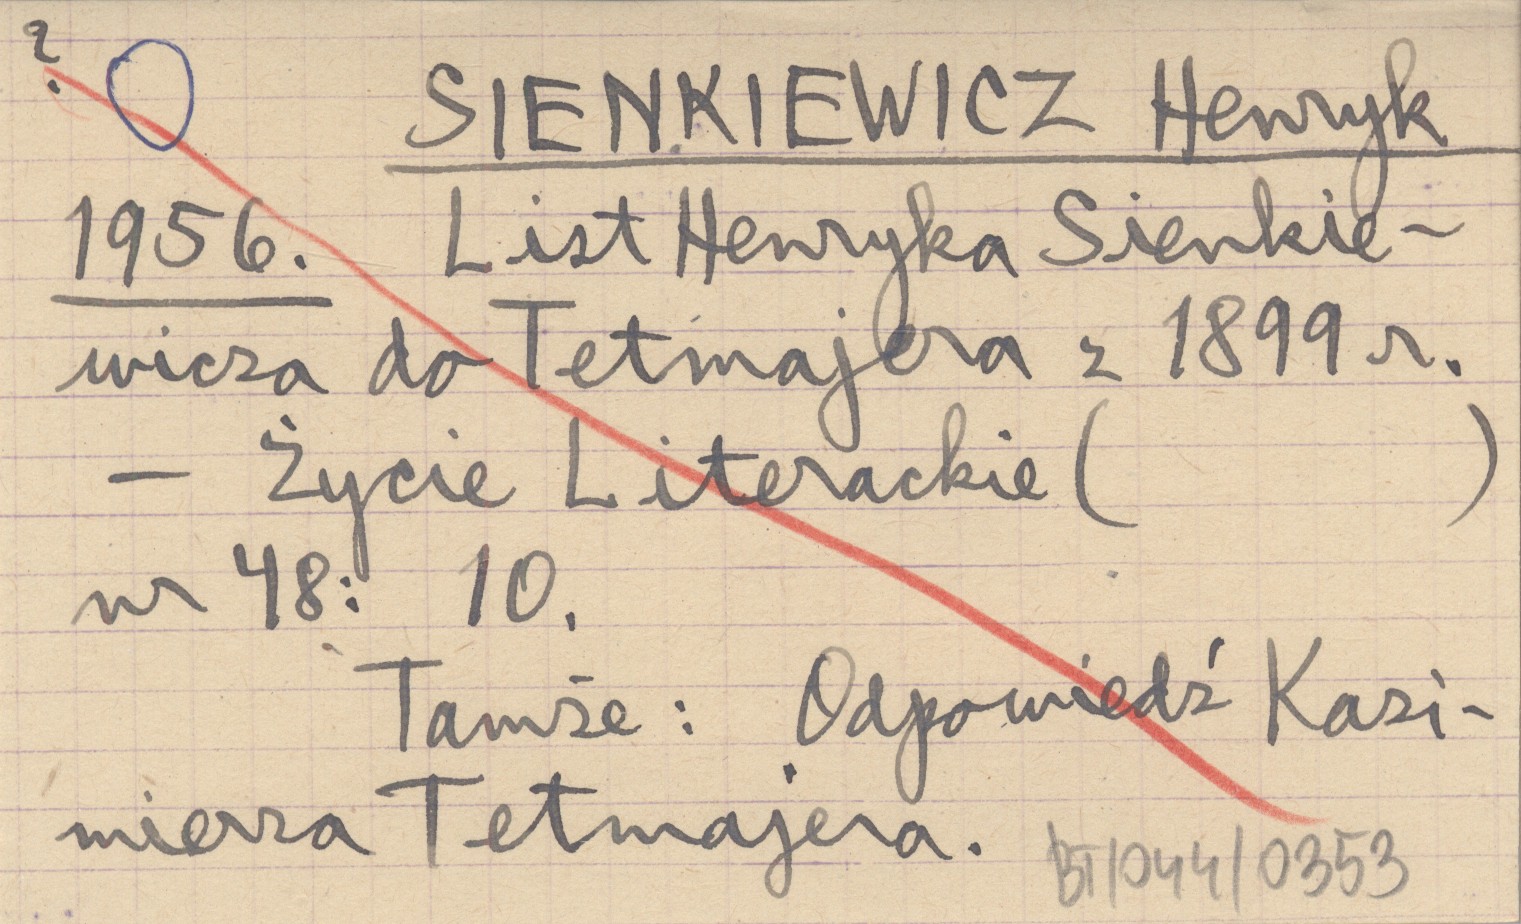 ?
SIENKIEWICZ Henryk
1956. List Henryka Sienkie-
wicza do Tetmajera z 1899 r.
— Życie Literackie ( )
nr 48: 10.
Tamże: Odpowiedź Kazi-
mierza Tetmajera.
BT/044/0353